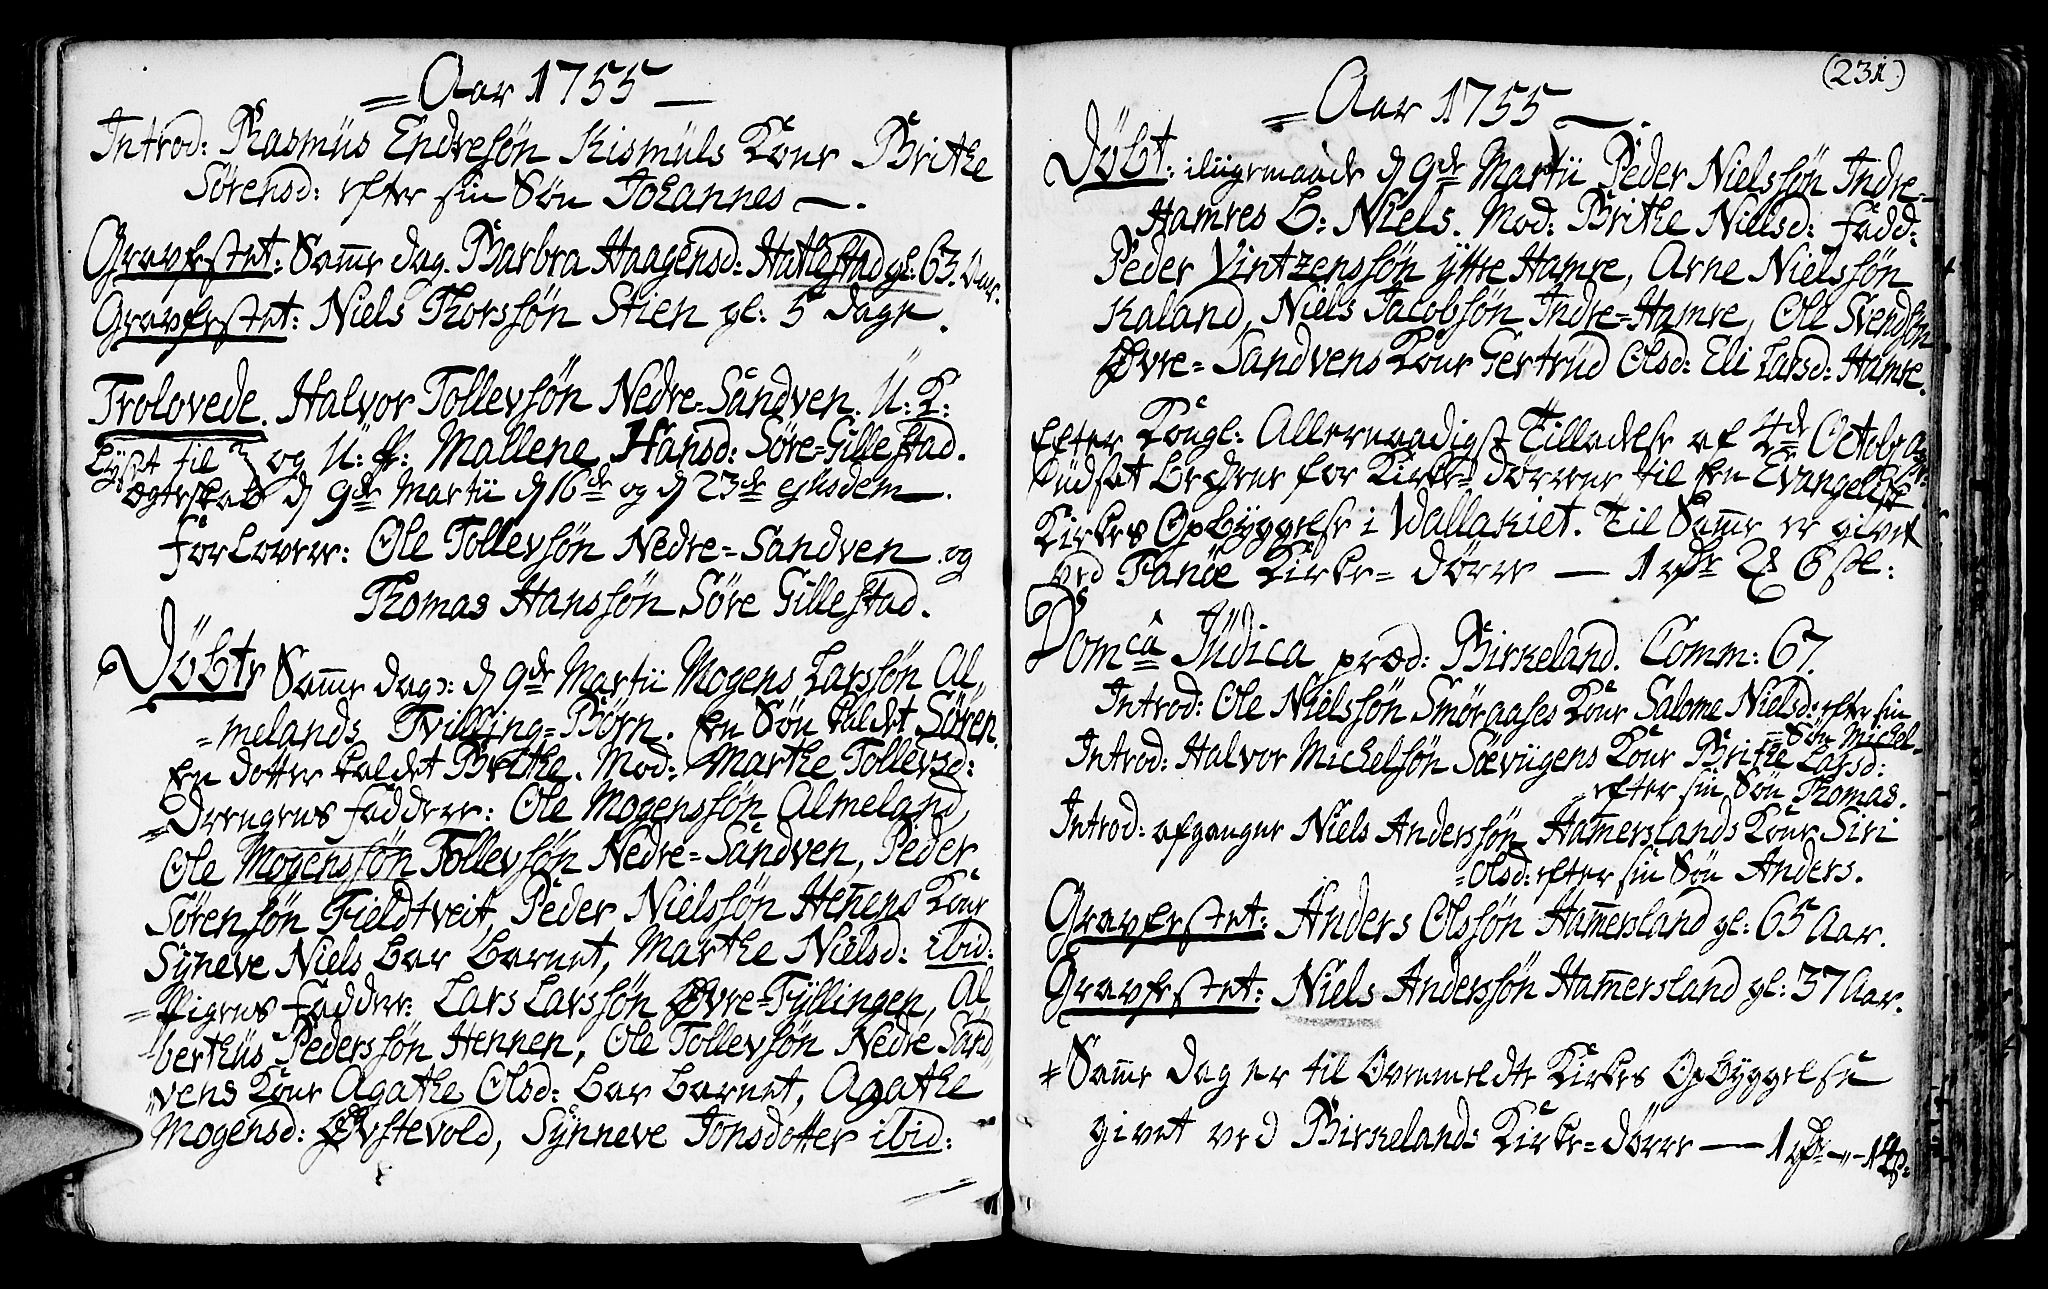 = Aar 1755 —
Introd: Rasmus Endresøn Kismuls Kone Brithe
Sørensd: efter sin Søn Johannes —.
Gravfestet: Samme dag. Barbra Haagensd: Hatlestad gl: 63. Aar.
Gravfestet: Niels Thorssøn Stien gl: 5 dage.
Trolovede. Halvor Tollevsøn Nedre=Sandven. U: K:
og U: P: Mallene Hansd: Søre=Gillestad.
Lyst til
Ægteskab d 9de Martii d 16de og d 23de ejusdem —.
Forlovere: Ole Tollevsøn Nedre=Sandven og
Thomas Hanssøn Søre Gillestad.
Døbte Samme dag: d 9de Martii Mogens Larssøn Al
=melands Tvilling=Børn. En Søn kaldet Søren.
En dotter kaldet Brithe. Mod: Marthe Tollevsd:
=Drengens Faddere: Ole Mogenssøn Almeland,
Ole Mogenssøn Tollevsøn Nedre=Sandven, Peder
Sørensøn Fieldtveit, Peder Nielssøn Hennens Kone
Syneve Niels bar barnet, Marthe Nielsd: ibid:
=Pigens Fadder: Lars Larssøn Øvre=Tyllingen, Al
berthus Pederssøn Hennen, Ole Tollevsøn Nedre Sand
vens Kone Agathe Olsd: bar barnet, Agathe
Mogensd: Øvstevold, Synneve Jonsdotter ibid:
(231.)
= Aar 1755 —.
Døbt: iligemaade d 9de Martii Peder Nielssøn Indre=
Hamres B: Niels. Mod: Brithe Nielsd: Fadd:
Peder Vintzenssøn ytre Hamre, Arne Nielssøn
Kaland, Niels Jacobsøn Indre=Hamre, Ole Svendsøn
Øvre=Sandvens Kone Gertrud Olsd: Eli Larsd: Hamre.
Efter Kongl: Allernaadigst Tilladelse af 4de Octobr
Udsat Bechen for Kirke=dørrene til en Evangelisk
Kirkes Opbyggelse i Wallakiet. Til Samme er givet
ved Fanøe Kirke=dørre — 1 rdr 2 6 sk:
Domca Judica præd: Birkeland. Comm: 67.
Introd: Ole Nielssøn Smøraases Kone Salome Nielsd: efter sin
=Søn Michel.
Introd: Halvor Michelsøn Søevigens Kone Brithe Larsd:
=efter sin Søn Thomas.
Introd: afgangne Niels Anderssøn Hamerslands Kone Siri
=Olsd: efter sin Søn Anders.
Gravfestet: Anders Olssøn Hamersland gl: 65 Aar.
Gravfestet: Niels Anderssøn Hamersland gl: 37 Aar.
Samme dag er til Ovenmeldte Kirkes Opbyggelse
givet ved Birkelands Kirke=dørre — 1 rdr —